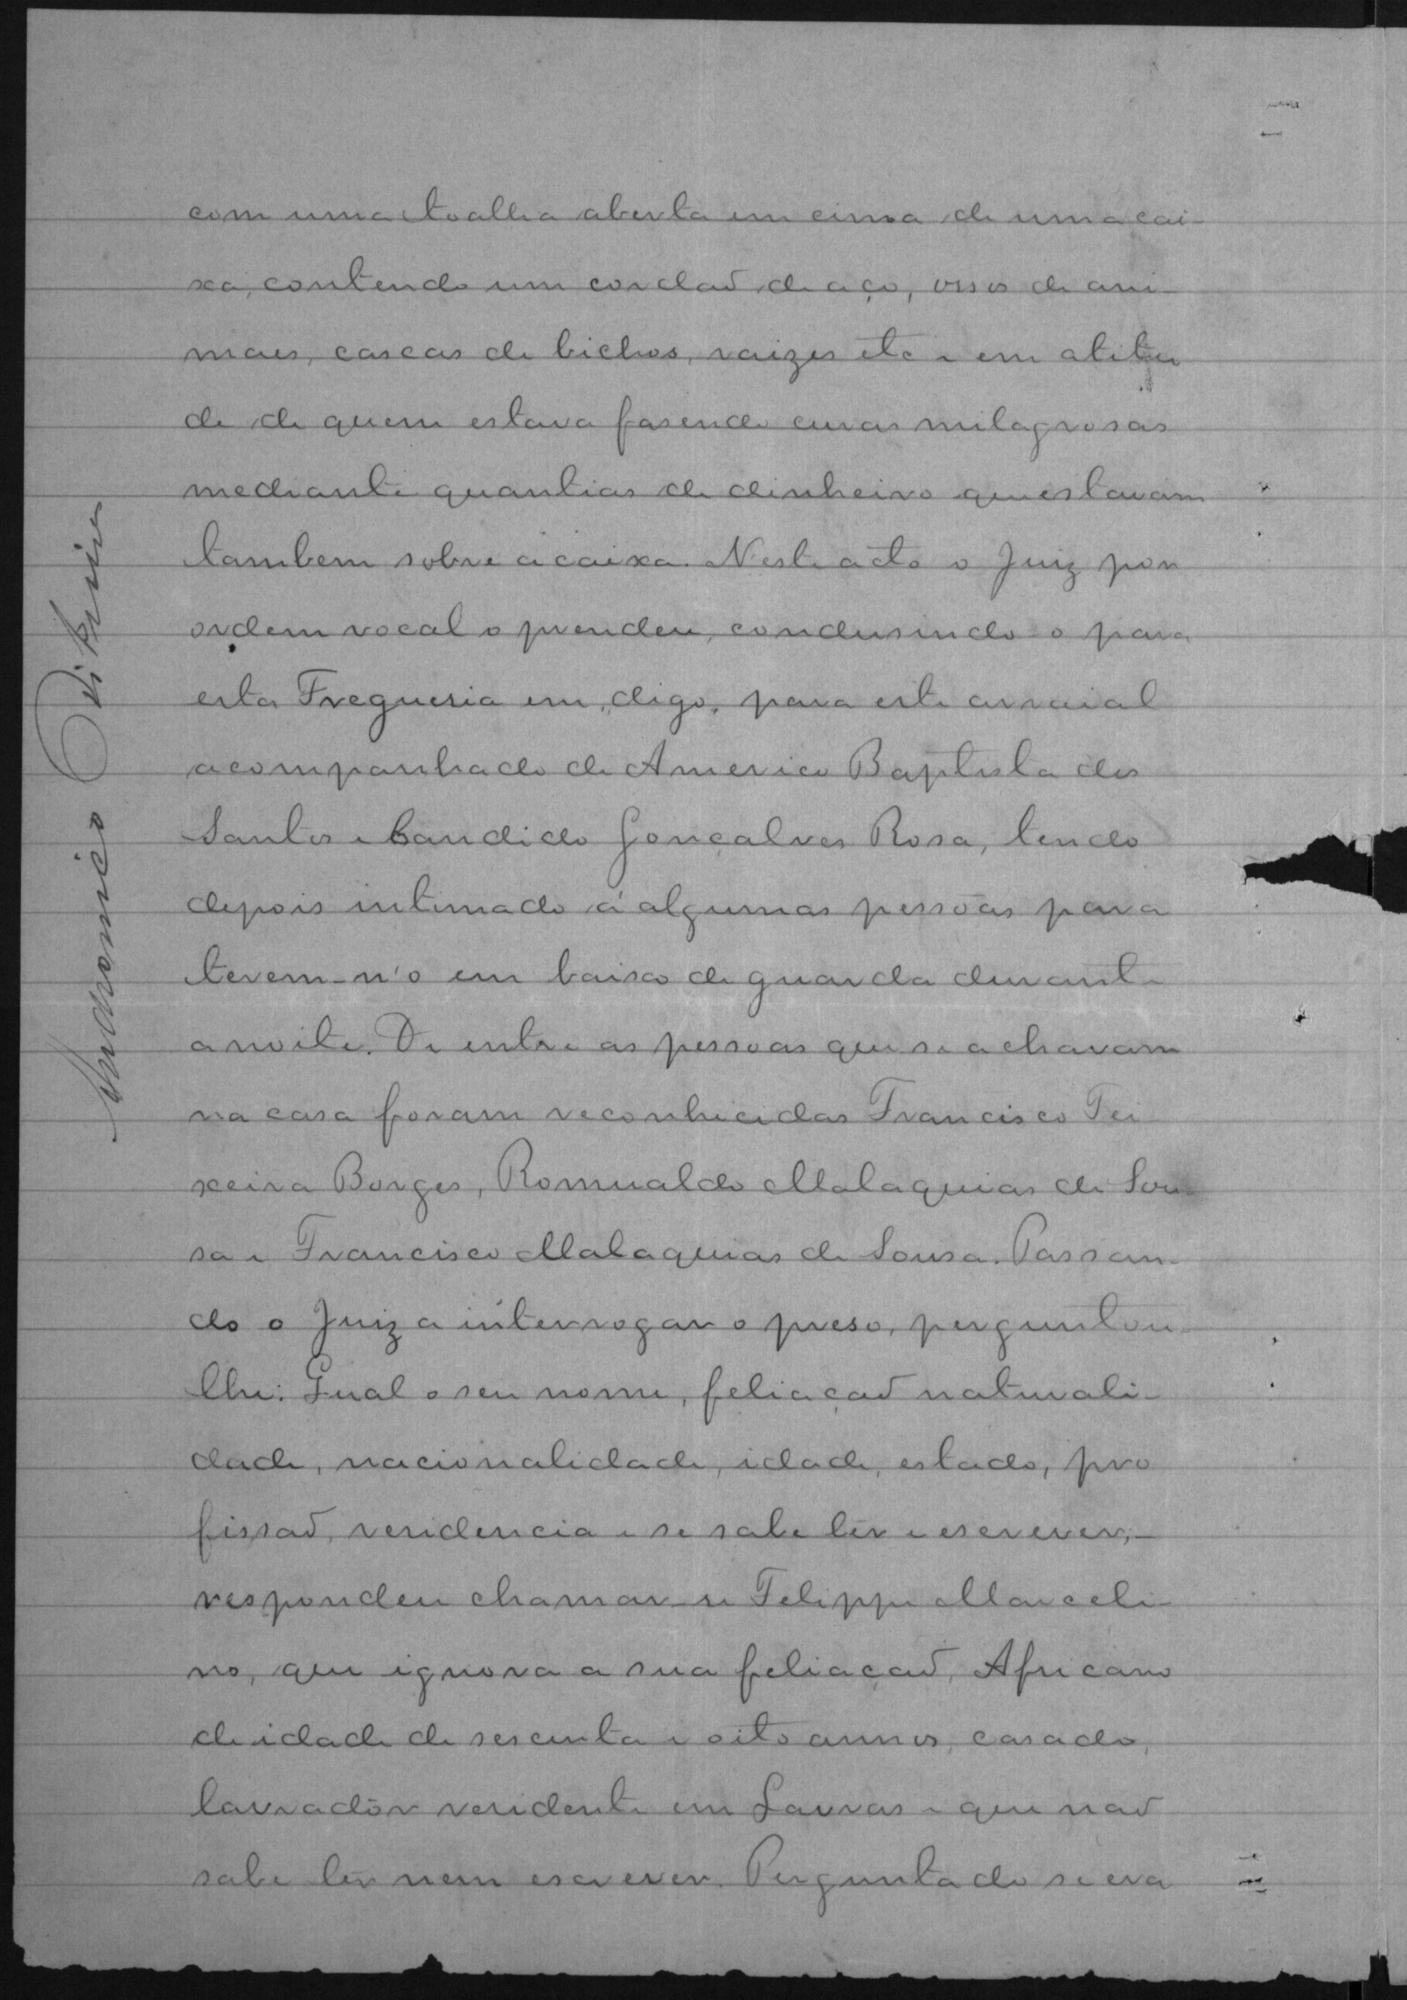 com uma toalha aberta em cima de uma cai-
xa, contendo um cordaõ de aço, ossos de ani-
maes, cascas de bichos, raizes etc e em atitu
de de quem estava fasendo curas milagrosas
mediante quantias de dinheiro que estavam
tambem sobre a caixa. Neste acto o Juiz por
ordem vocal o prendeu, condusindo-o para
esta Freguesia em, digo, para este arraial
acompanhado de Americo Baptista dos
Santos e Candido Gonçalves Rosa, tendo
depois intimado á algumas pessôas para
terem-n'o em baixo de guarda durante
a noite. De entre as pessoas que se achavam
na casa foram reconhecidas Francisco Tei
xeira Borges, Romualdo Malaquias de Sou-
sa e Francisco Malaquias de Sousa. Passan-
do o Juiz a interrogar o preso, perguntou-
lhe: Qual o seu nome, feliaçaõ naturali-
dade, nacionalidade, idade, estado, pro
fissaõ, residencia e se sabe lêr e escrever,-
respondeu chamar-se Felippe Marceli-
no, que ignora a sua feliaçaõ, Africano
de idade de sescenta e oito annos, casado,
lavradôr residente em Lavras e que naõ
sabe lêr nem escrever. Perguntado se era
Andronico